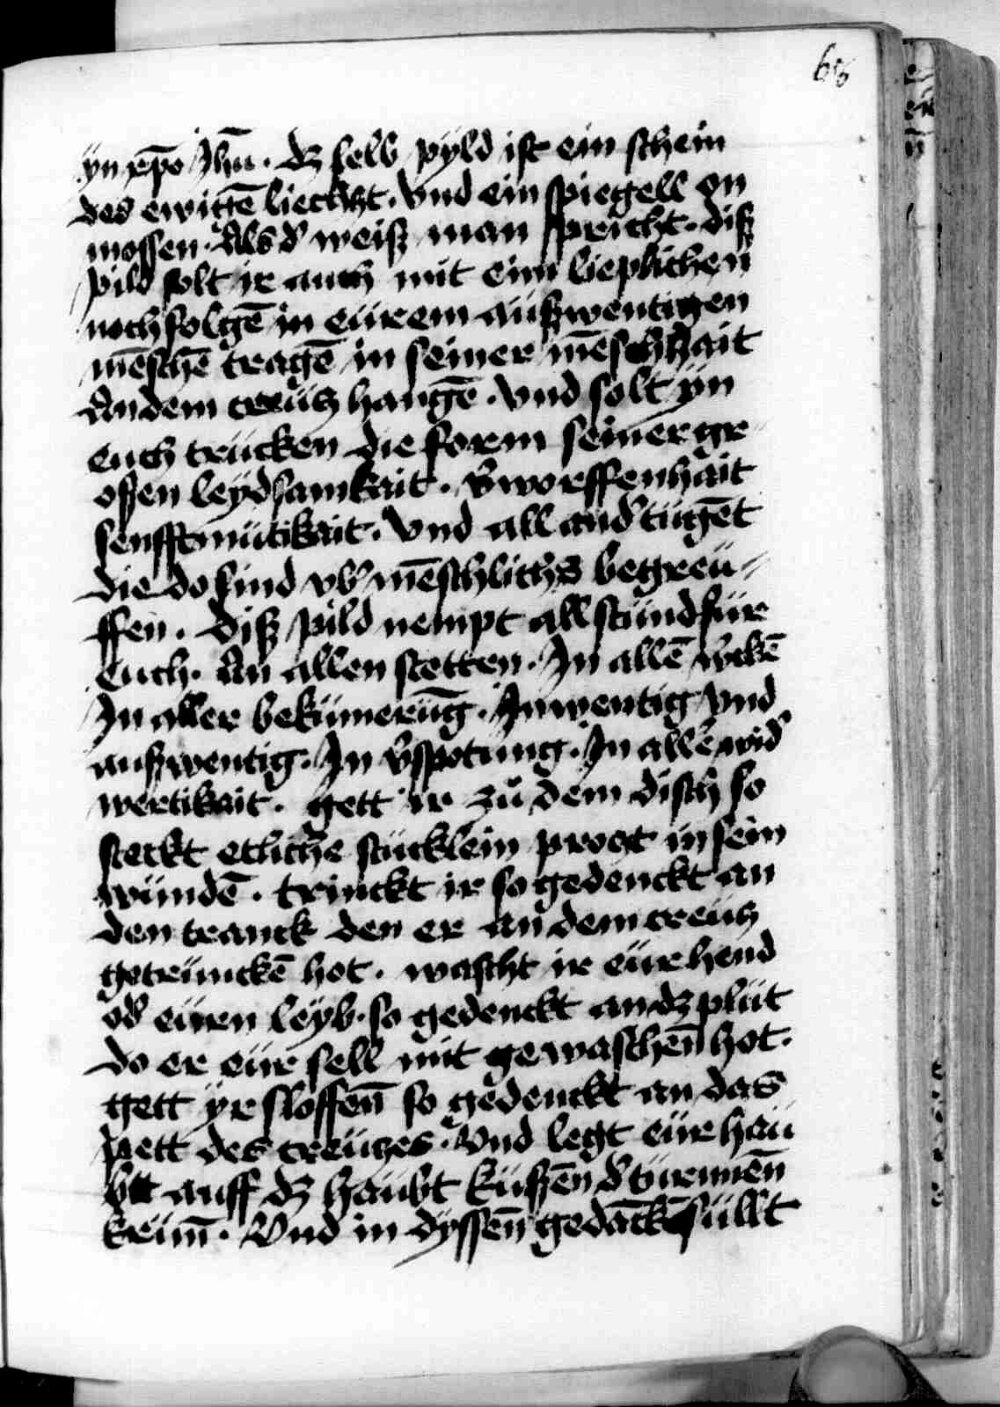 68
yn xpo Jhu. dz selb pyld ist ein schein
des ewigē liechtz. vnd ein spiegell on
mossen. Als d' weiß man spricht. diß
pild solt ir auch mit eim lieplichen
nochfolgē in eürem außwentigen
mēschē tragē in seiner mēschhait
An dem creütz hangē. vnd solt yn
euch trücken die form seiner gr
ossen leydsamkait. v'worffenhait
senfftmütikait. Vnd all and' tügēt
die do sind vb' mēschlichs begreü
ffen. Diß pild nempt all stünd für
Euch. An allen stetten. Jn allē w'ckē
Jn aller bekümerūg. Jnwentig vnd
außwentig. Jn v'spotung. Jn allē wid'
wertikait. gett ir zů dem disch so
steckt etliche stücklein proot in sein
wündē. trinckt ir so gedenckt an
den tranck den er an dem creütz
getrünckē hot. wascht ir eür hend
od' eüren leyb. so gedenckt an dz plüt
do er eür sell mit gewaschen hot.
gett yr sloffen so gedenckt an das
pett des creützes. Vnd legt eür hau
bt auff dz haubt küßen d' türennen
kron. Vnd in dyssen gedāckē süllt